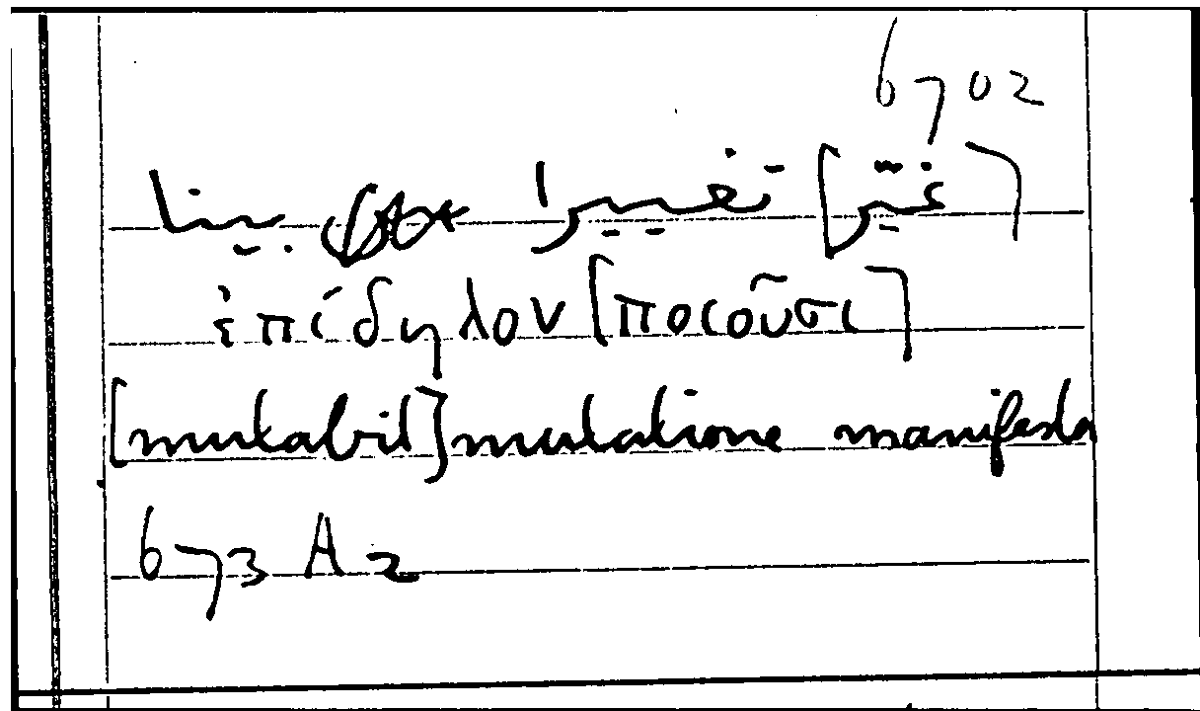 6702
[غيّر] تغييرا بينا
ἐπίδηλον [ποιοῦσι]
[mutabit] mutatione manifesta
673 A 2